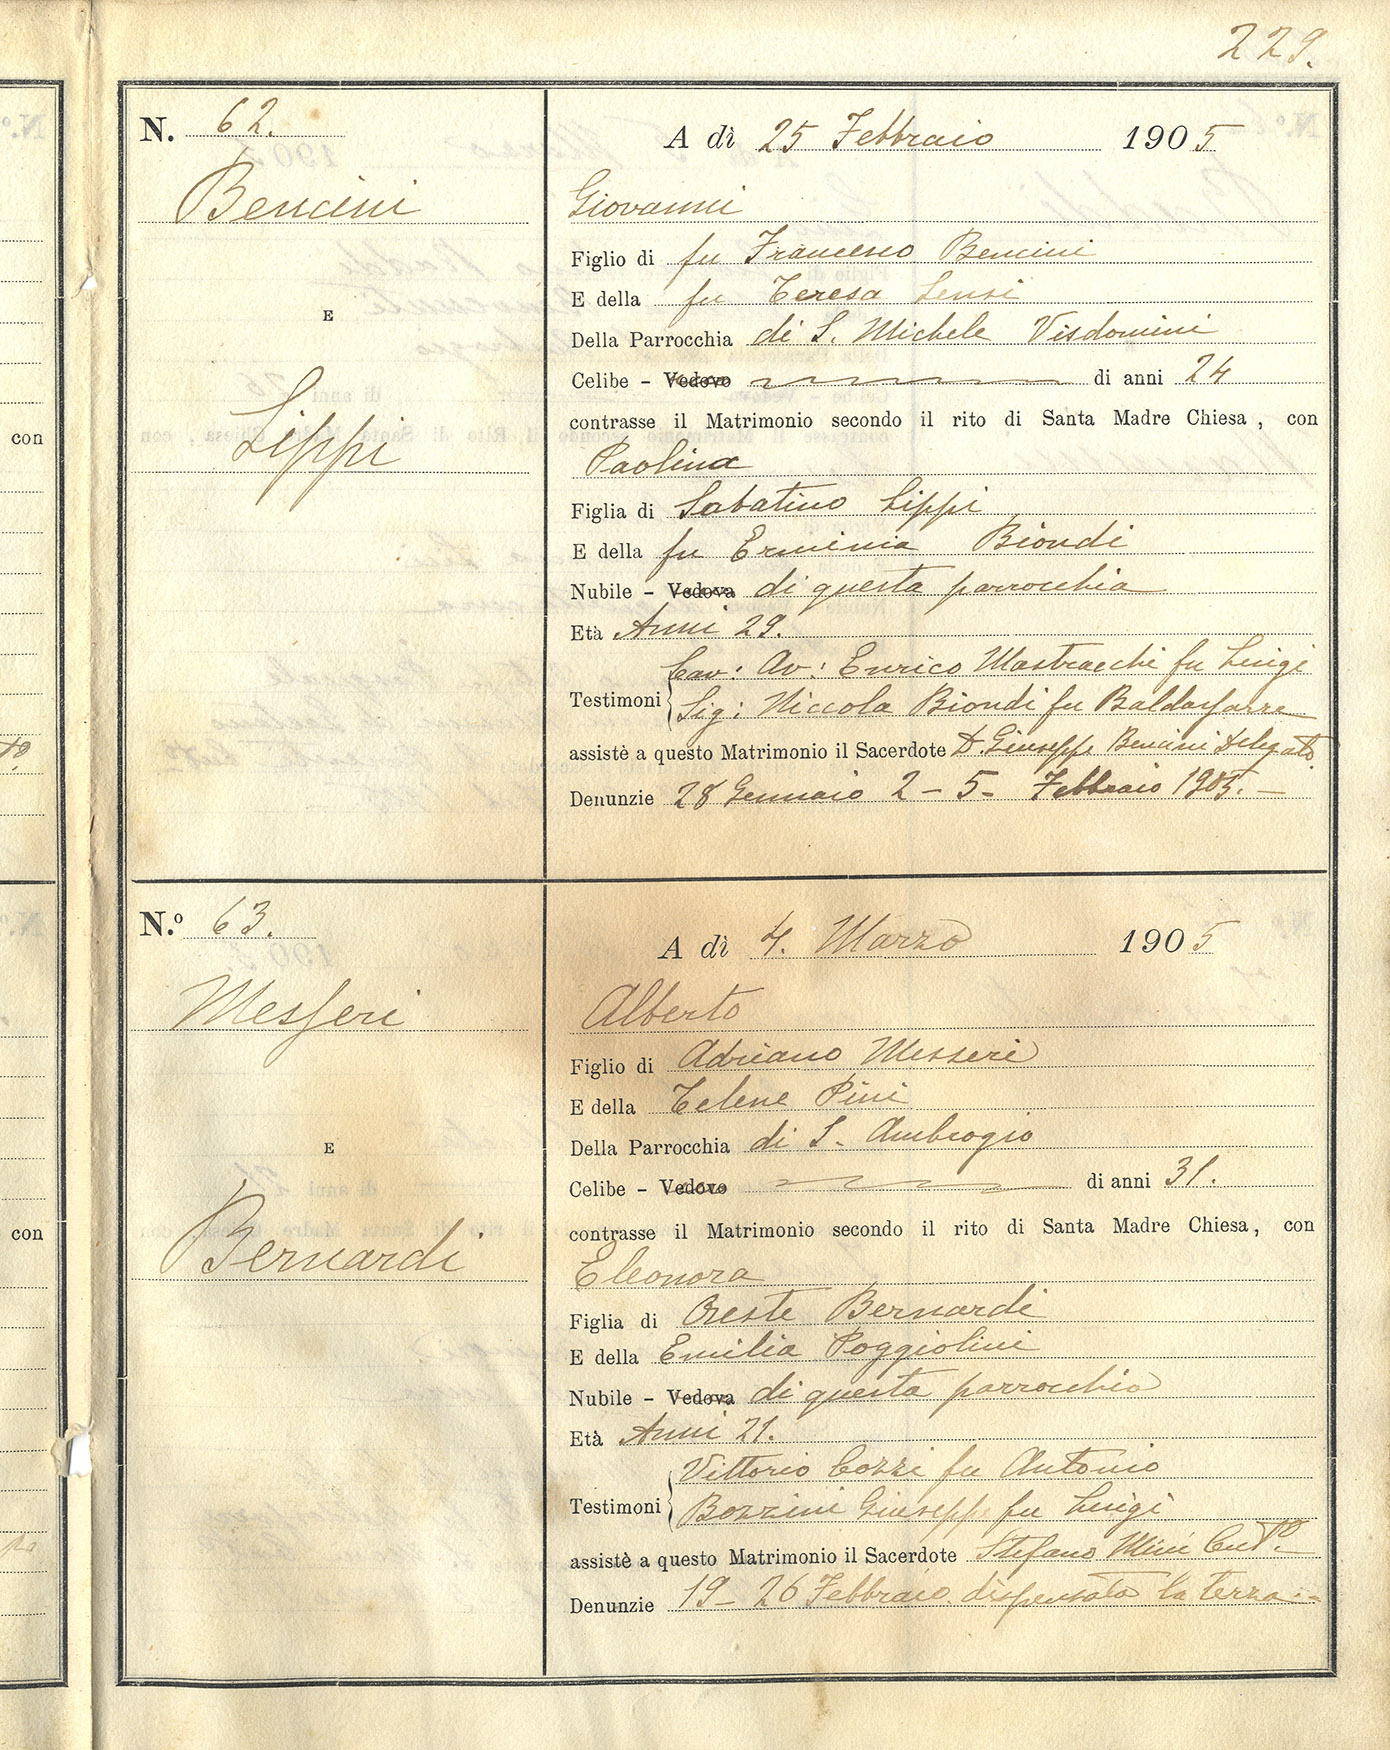 229.
N. 62.
A dì 25 Febbraio 1905
Bencini
Giovanni
Figlio di fu Francesco Bencini
E della fu Teresa Sensi
E
Della Parrocchia di S. Michele Visdomini
Celibe - Vedovo di anni 24
contrasse il Matrimonio secondo il rito di Santa Madre Chiesa, con
Lippi
Paolina
Figlia di Sabatino Lippi
E della fu Erminia Biondi
Nubile - Vedova di questa parrocchia
Età Anni 29.
Cav: Av: Enrico Mastracchi fu Luigi
Testimoni
Sig: Niccola Biondi fu Baldassarre
assistè a questo Matrimonio il Sacerdote D. Giuseppe Bencini Delegato
Denunzie 28 Gennaio 2 - 5 - Febbraio 1905. -
N.º 63.
A dì 4. Marzo 1905
Messeri
Alberto
Figlio di Adriano Messeri
E della Telene Pini
E
Della Parrocchia di S. Ambrogio
Celibe - Vedovo di anni 31.
contrasse il Matrimonio secondo il rito di Santa Madre Chiesa, con
Bernardi
Eleonora
Figlia di Oreste Bernardi
E della Emilia Poggiolini
Nubile - Vedova di questa parrocchia
Età Anni 21.
Vittorio Cozzi fu Antonio
Testimoni
Bozzini Giuseppe fu Luigi
assistè a questo Matrimonio il Sacerdote Stefano Mini
Denunzie 19 - 26 Febbraio. dispensato la terza
con
con